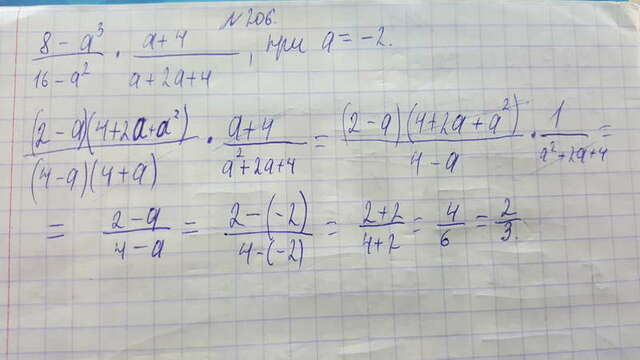 N 206.
(8 - a³)/(16 - a²) · (a + 4)/(a + 2a + 4), при a = -2.
((2 - a)(4 + 2a + a²))/((4 - a)(4 + a)) · (a + 4)/(a² + 2a + 4) = ((2 - a)(4 + 2a + a²))/(4 - a) · 1/(a² + 2a + 4) =
= (2 - a)/(4 - a) = (2 - (-2))/(4 - (-2)) = (2 + 2)/(4 + 2) = 4/6 = 2/3.